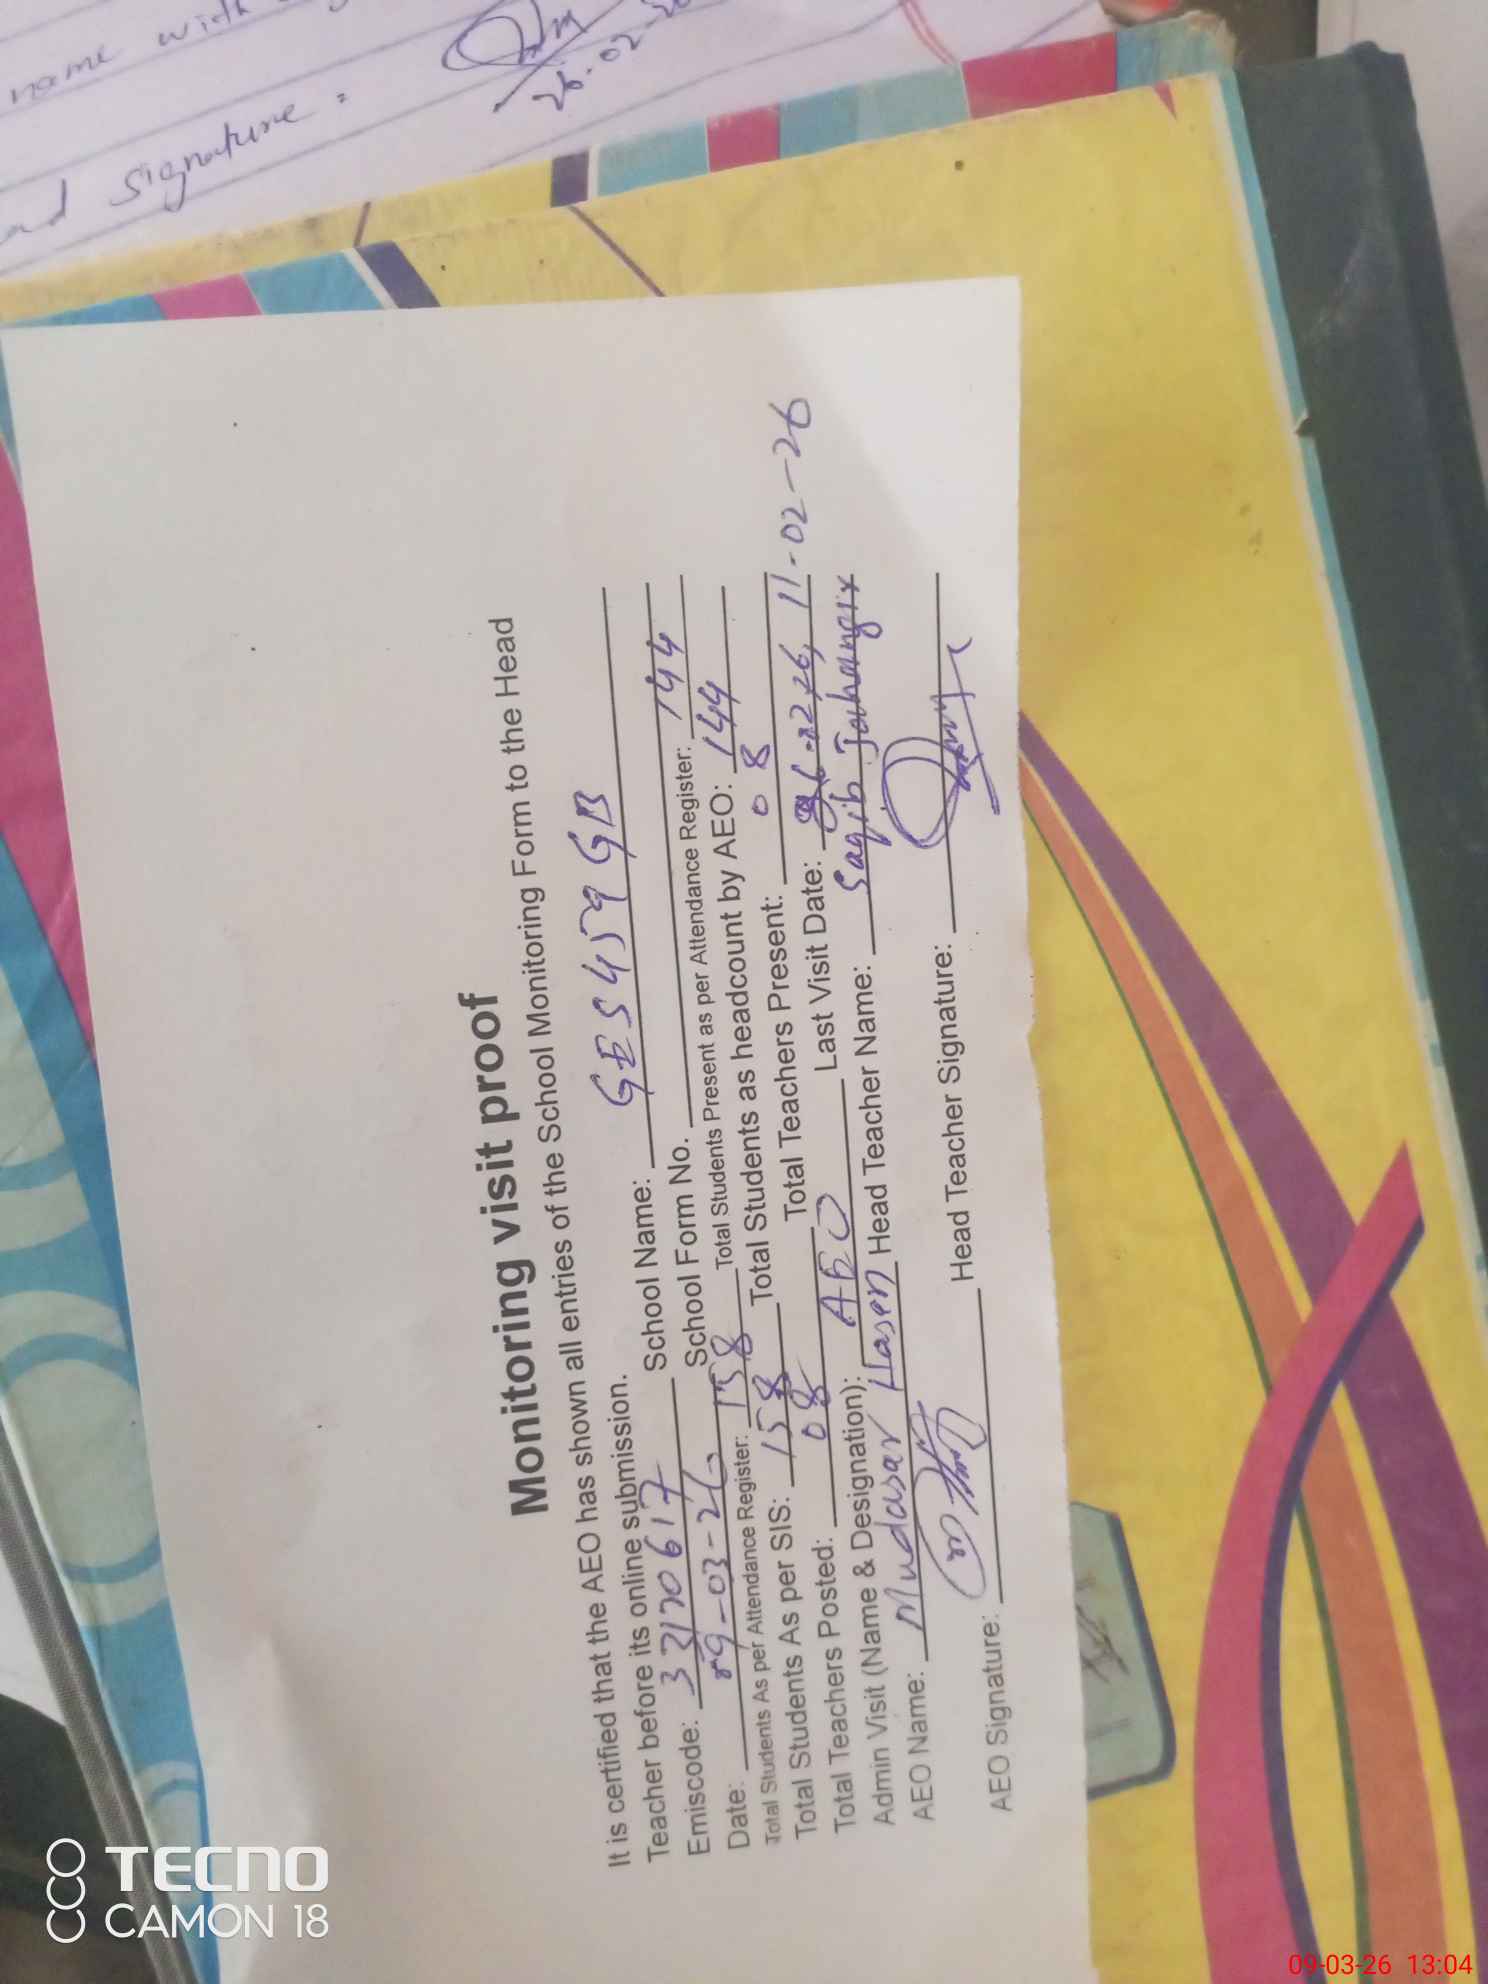 name with
and Signature :
26-02-26
Monitoring visit proof
It is certified that the AEO has shown all entries of the School Monitoring Form to the Head
Teacher before its online submission.
Emiscode: 33120617 School Name: GES 459 GB
Date: 09-03-26 School Form No.
Total Students As per Attendance Register: 158 Total Students Present as per Attendance Register: 144
Total Students As per SIS: 158 Total Students as headcount by AEO: 144
Total Teachers Posted: 08 Total Teachers Present: 08
Admin Visit (Name & Designation): AEO Last Visit Date: 11-02-26
AEO Name: Mudasar Hasan Head Teacher Name: Saqib Jahangir
AEO Signature: Head Teacher Signature:
TECNO
CAMON 18
09-03-26 13:04